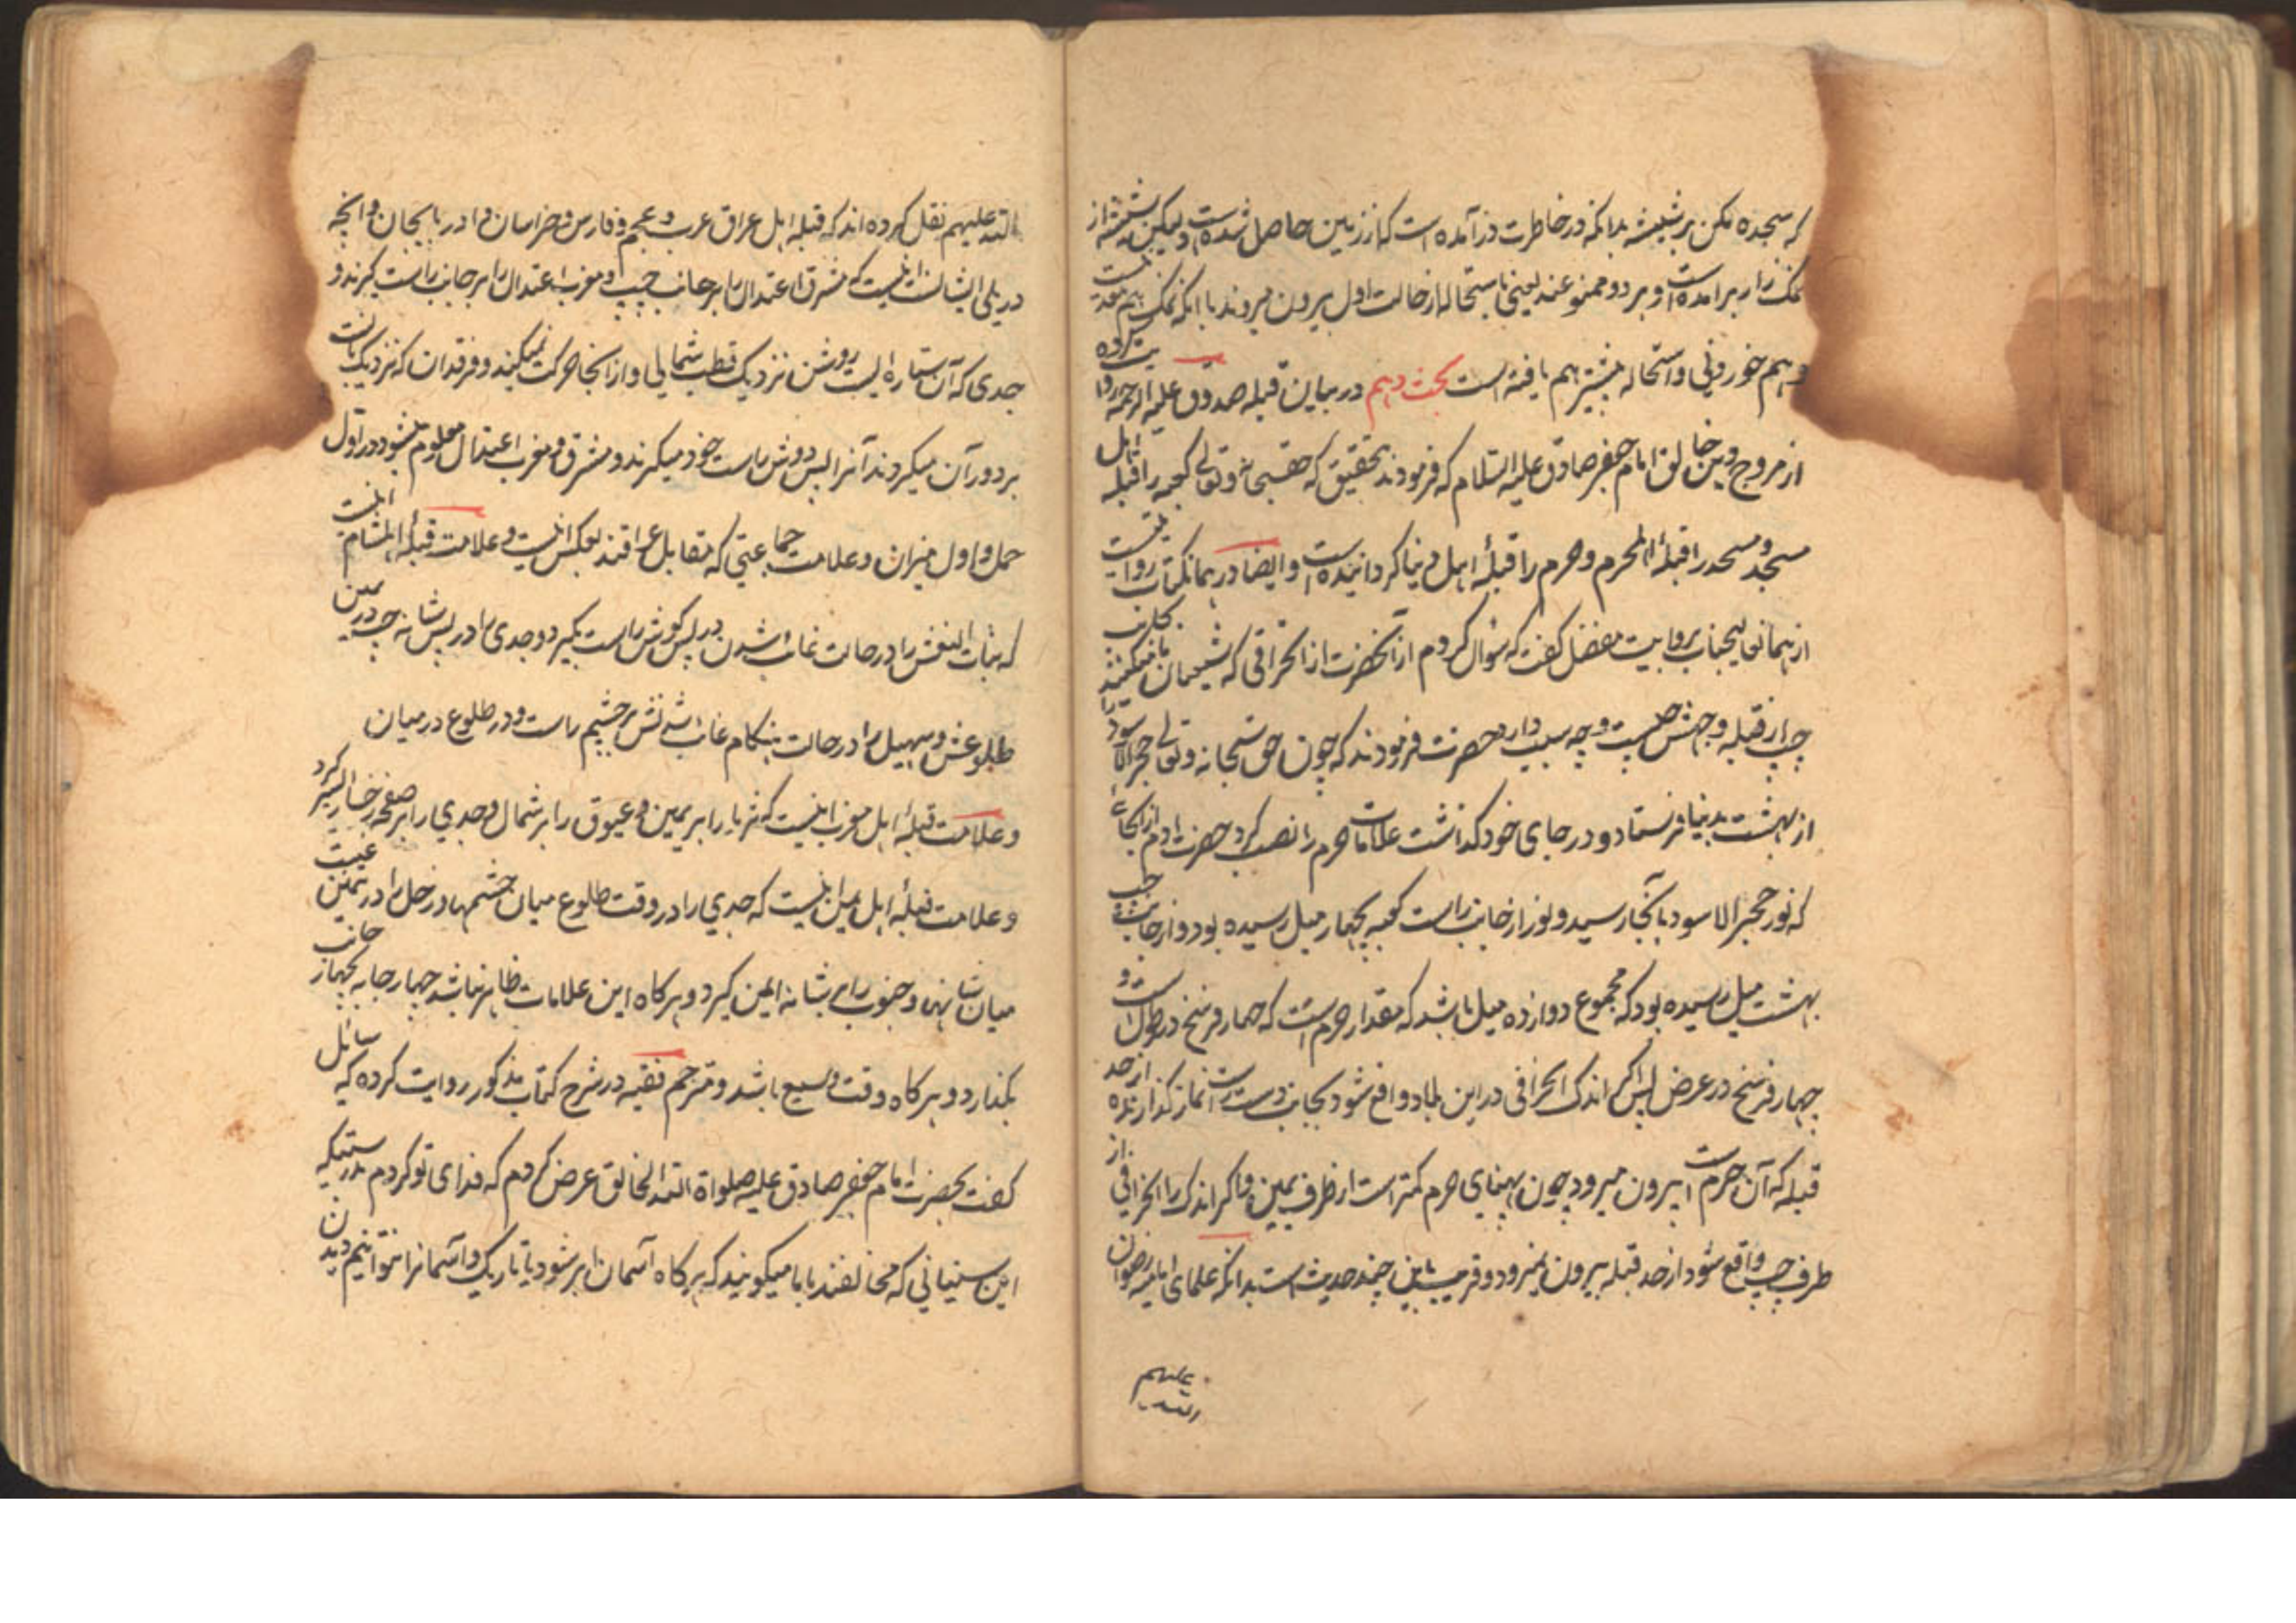 که سجده مکن بر شیشه بدانکه در خاطرت در آمده است که از زمین حاصل شده است ولیکن شیشه از
نمک زار برآمده است و هر دو ممنوعند یعنی باستحاله از حالت اول بیرون میروند با آنکه نمک هم معدنیست
و هم خوردنی و استحاله بیشتر هم یافته است بحث دهم در بیان قبله صدوق علیه الرحمه روایت کرده
از مروج دین خالق امام جعفر صادق علیه السلام که فرمودند بتحقیق که حقسبحانه و تعالی کعبه را قبله اهل
مسجد و مسجد را قبلهٔ اهل حرم و حرم را قبلهٔ اهل دنیا گردانیده است و ایضا در همانکتاب روایتست
از همانعالیجناب بروایت مفضل گفت که سؤال کردم از آنحضرت از انحرافی که شیعیان ما میکنند بجانب
چپ از قبله وجهش چیست و چه سبب دارد حضرت فرمودند که چون حق سبحانه و تعالی حجر الاسود را
از بهشت بدنیا فرستاد و در جای خود گذاشت علامات حرم را نصب کرد حضرت آدم از آنجائی
که نور حجر الاسود بآنجا رسید و نور از جانب راست کعبه بچهار میل رسیده بود و از جانب چپ
بهشت میل رسیده بود که مجموع دوازده میل باشد که مقدار حرم است که چهار فرسخ در طول است و
چهار فرسخ در عرض پس اگر اندک انحرافی در این بلاد واقع شود بجانب دست راست نماز گذارنده از حد
قبله که آن حرم است بیرون میرود چون پهنای حرم کمتر است از طرف یمین و اگر اندک را انحرافی از
طرف چپ واقع شود از حد قبله بیرون نمیرود و قریب باین چند حدیث است بدانکه علمای امامیه رضوان
علیهم
التد علیهم نقل کرده اند که قبله اهل عراق عرب و عجم و فارس و خراسان و ادربایجان و آنچه
در یلی ایشانست اینست که مشرق اعتدال را بر جانب چپ و مغرب اعتدال را بر جانب راست گیرند و
جدی که آن ستاره ایست روشن نزدیک قطب شمالی و از آنجا حرکت نمیکند و فرقدان که نزدیک بانست
بر دور آن میگردند آنرا پس دوش راست خود میگیرند و مشرق و مغرب اعتدال معلوم میشود در اول
حمل و اول میزان و علامت جماعتی که مقابل عراقند بعکس اینست و علامت قبلهٔ اهل شام اینست
که بنات النعش را در حالت غایب شدن در پس گوش راست بگیرد و جدی را در پس شانه چپ در حین
طلوعش و سهیل را در حالت هنگام غایب شدنش بر چشم راست و در طلوع در میان
و علامت قبلهٔ اهل مغرب اینست که ثریا را بر یمین و عیوق را بر شمال و جدی را بر صفحه رخسار گیرد
و علامت قبلهٔ اهل یمن اینست که جدی را در وقت طلوع میان چشمها و زحل را در حین غیبت
میان شانها و جنوب را بر شانه ایمن گیرد و هرگاه این علامات ظاهر نباشد چهار جا به چهار جانب
بگذارد و هرگاه وقت وسیع باشد و مترجم فقیه در شرح کتاب مذکور روایت کرده که سائل
گفت بحضرت امام جعفر صادق علیه صلواة التد الخالق عرض کردم که فدای تو گردم بدرستیکه
این سنیانی که مخالفند با ما میگویند که هرگاه آسمان ابر شود یا تاریک و آسمانرا نتوانیم دیدن